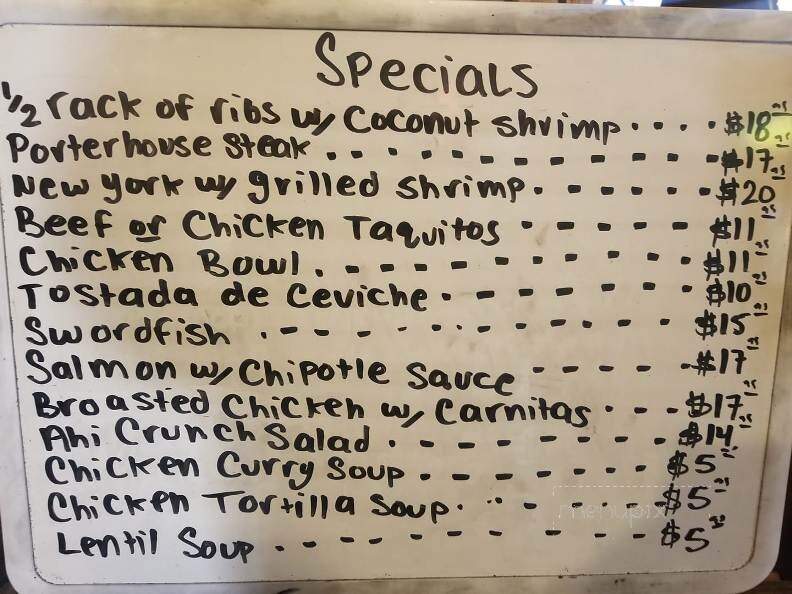 Specials
1/2 rack of ribs w/ Coconut shrimp.... $18
Porterhouse Steak........... $17
New york w/ grilled shrimp....... $20
Beef or Chicken Taquitos ------ $11
Chicken Bowl........... $11
Tostada de Ceviche........ $10
Swordfish ............ $15
Salmon w/ Chipotle Sauce ----- $17
Broasted Chicken w/ Carnitas.--- $17
Ahi Crunch Salad......... $14
Chicken Curry Soup........ $5
Chicken Tortilla Soup...... $5
Lentil Soup.......... $5
menupix